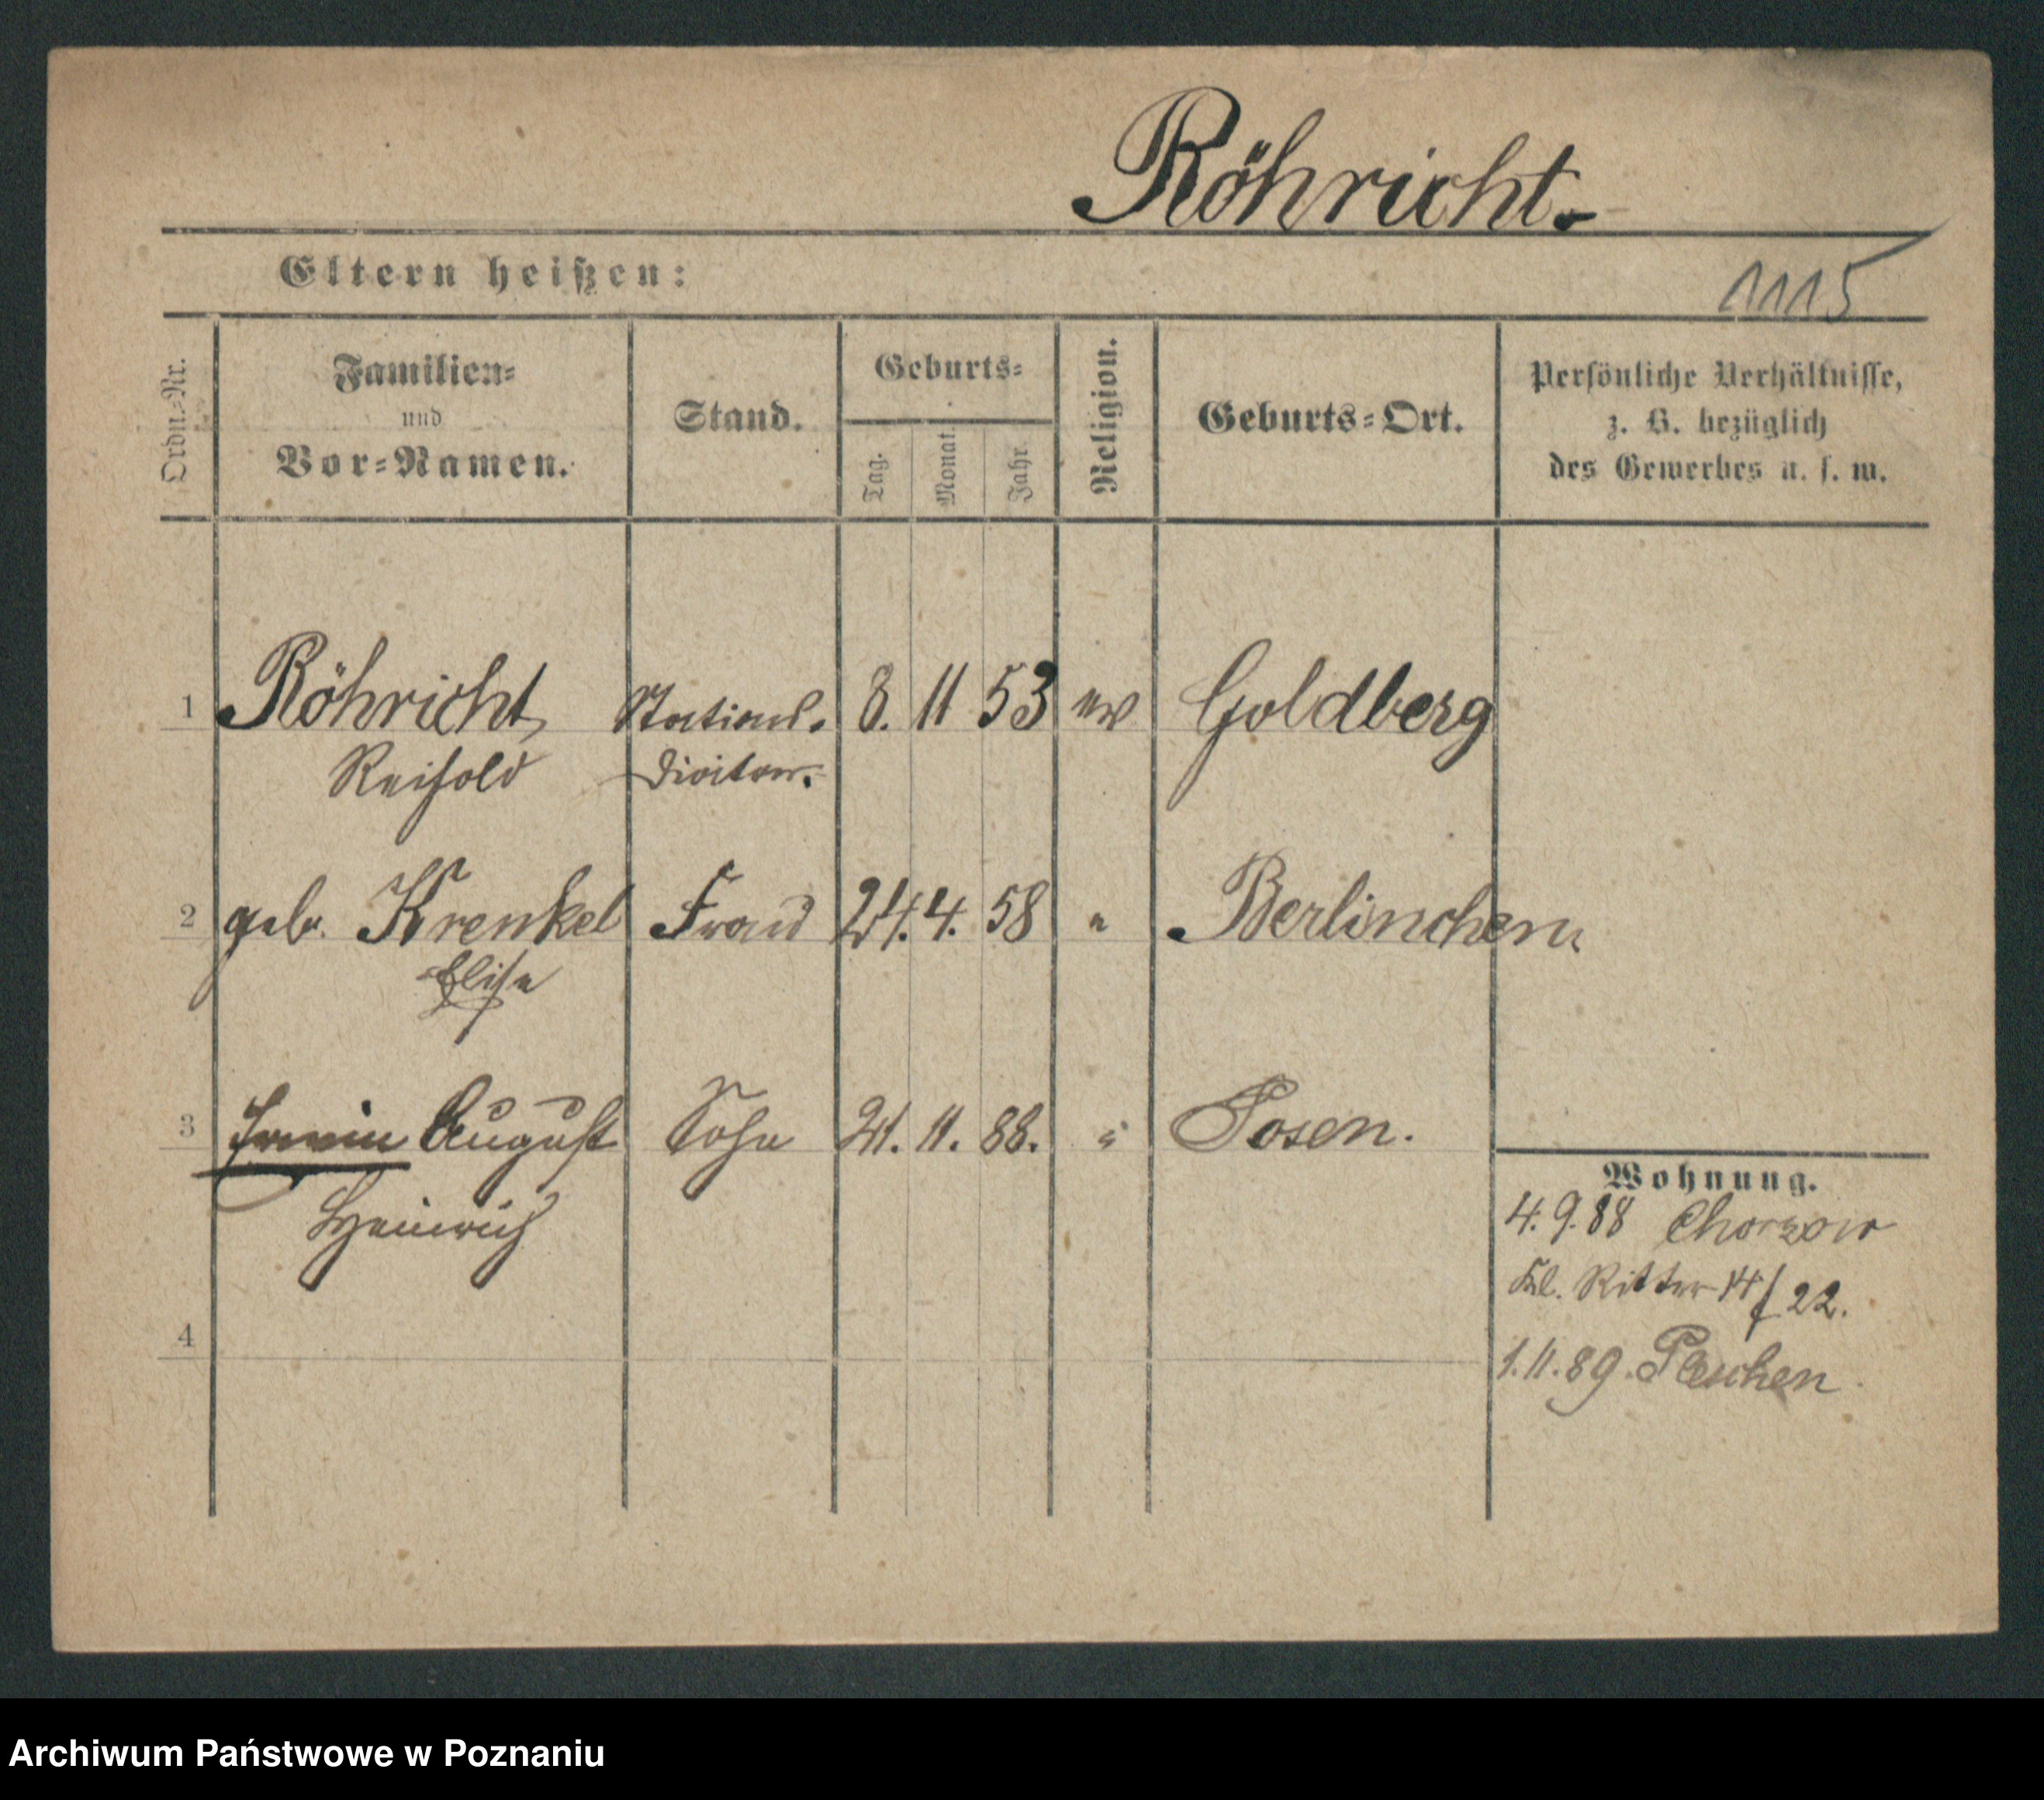 Röhricht.
Eltern heißen:
1115
Ordn.-Nr.
Familien-
und
Vor-Namen.
Stand.
Geburts-
Tag.
Monat
Jahr.
Religion.
Geburts-Ort.
Persönliche Verhältnisse,
z. B. bezüglich
des Gewerbes u. s. w.
1 Röhricht, Stations. 8. 11 53 ev Goldberg
Reihold
2 geb. Krenkel Frau 24. 4. 58 " Berlinchen
Elise
3 Erwin August Sohn 21. 11. 88. " Posen.
Heinrich
4
Wohnung.
4. 9. 88 Chorzow
Kl. Ritter 14/22.
1. 11. 89. Pleschen
Archiwum Państwowe w Poznaniu